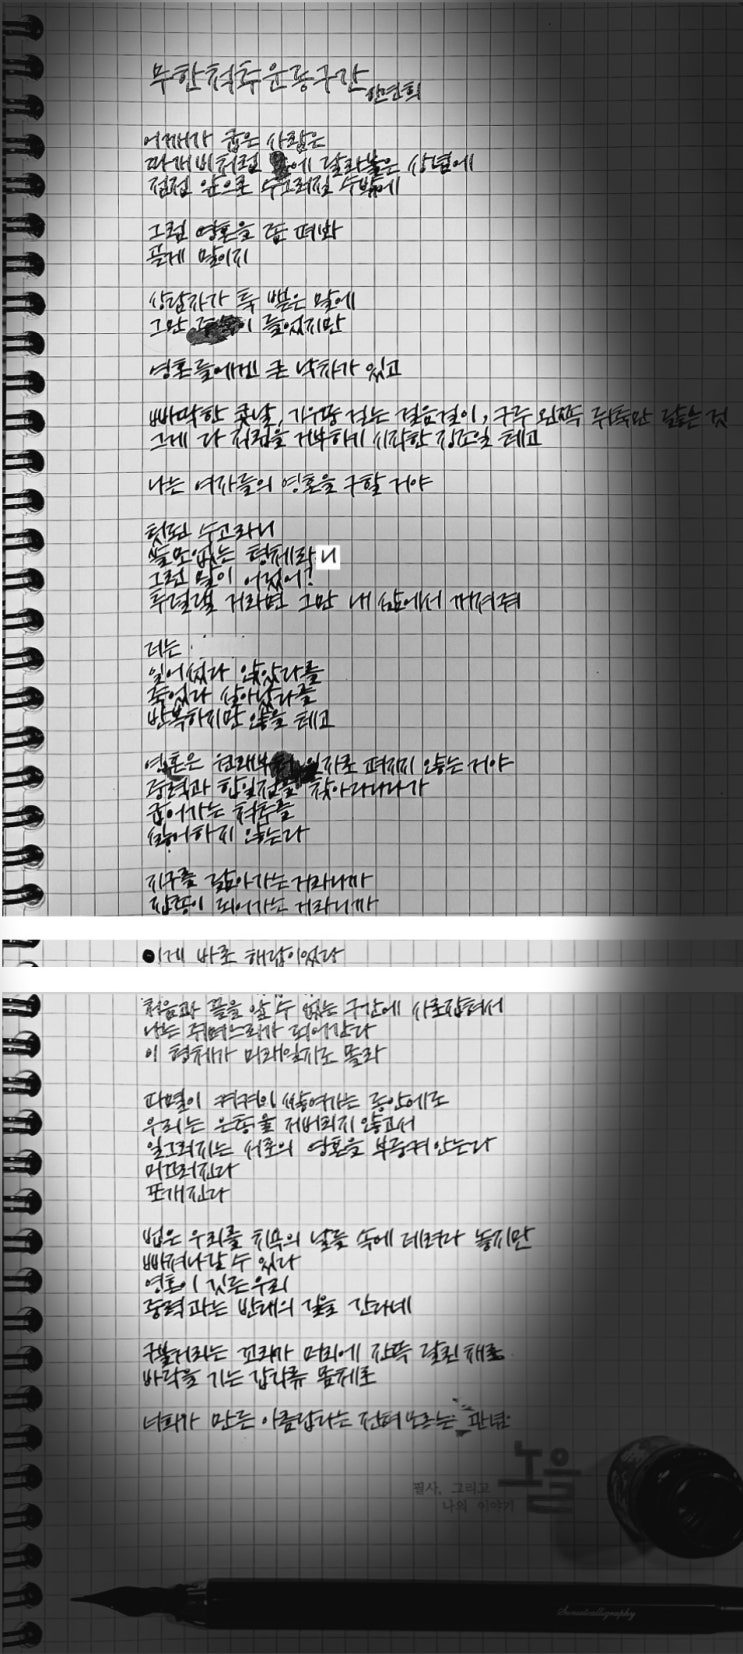 무한척추운동구간
한연희
어깨가 굽은 사람은
따개비처럼 에 달라붙은 상념에
점점 앞으로 수그러질 수밖에
그럼 영혼을 좀 펴봐
곧게 말이지
상담자가 툭 뱉은 말에
그만 이 들었지만
영혼들에겐 큰 낙차가 있고
삐딱한 콧날, 기우뚱 걷는 걸음걸이, 구두 왼쪽 뒤축만 닳는 것
그게 다 처럼을 거부하기 시작한 징조일 테고
나는 여자들의 영혼을 구할 거야
헛된 수고라니
쓸모없는 형체라니
그런 말이 어딨어?
투덜댈 거라면 그만 내 삶에서 꺼져줘
너는
일어섰다 앉았다를
죽었다 살아났다를
반복하지만 않을 테고
영혼은 원래 일자로 펴지지 않는 거야
중력과 합일점을 찾아나가다가
굽어가는 척추를
싫어하지 않는다
지구를 닮아가는 거라니까
튀어가는 거라니까
이게 바로 해답이었다
처음과 끝을 알 수 없는 구간에 사로잡혀서
나는 쥐며느리가 되어간다
이 형체가 미래일지도 몰라
파멸이 켜켜이 쌓여가는 동안에도
우리는 운동을 저버리지 않고서
일그러지는 서로의 영혼을 부둥켜안는다
미끄러진다
또개진다
법은 우리를 치욕의 날들 속에 데려다 놓지만
빠져나갈 수 있다
영혼이 깃든 우리
중력과는 반대의 길로 간다네
구불거리는 꼬리가 머리에 잔뜩 달린 채로
바닥을 기는 갑각류 몸체로
너희가 만든 아름답다는 관념
필사, 그리고
나의 이야기
노을
Sunsetcalligraphy